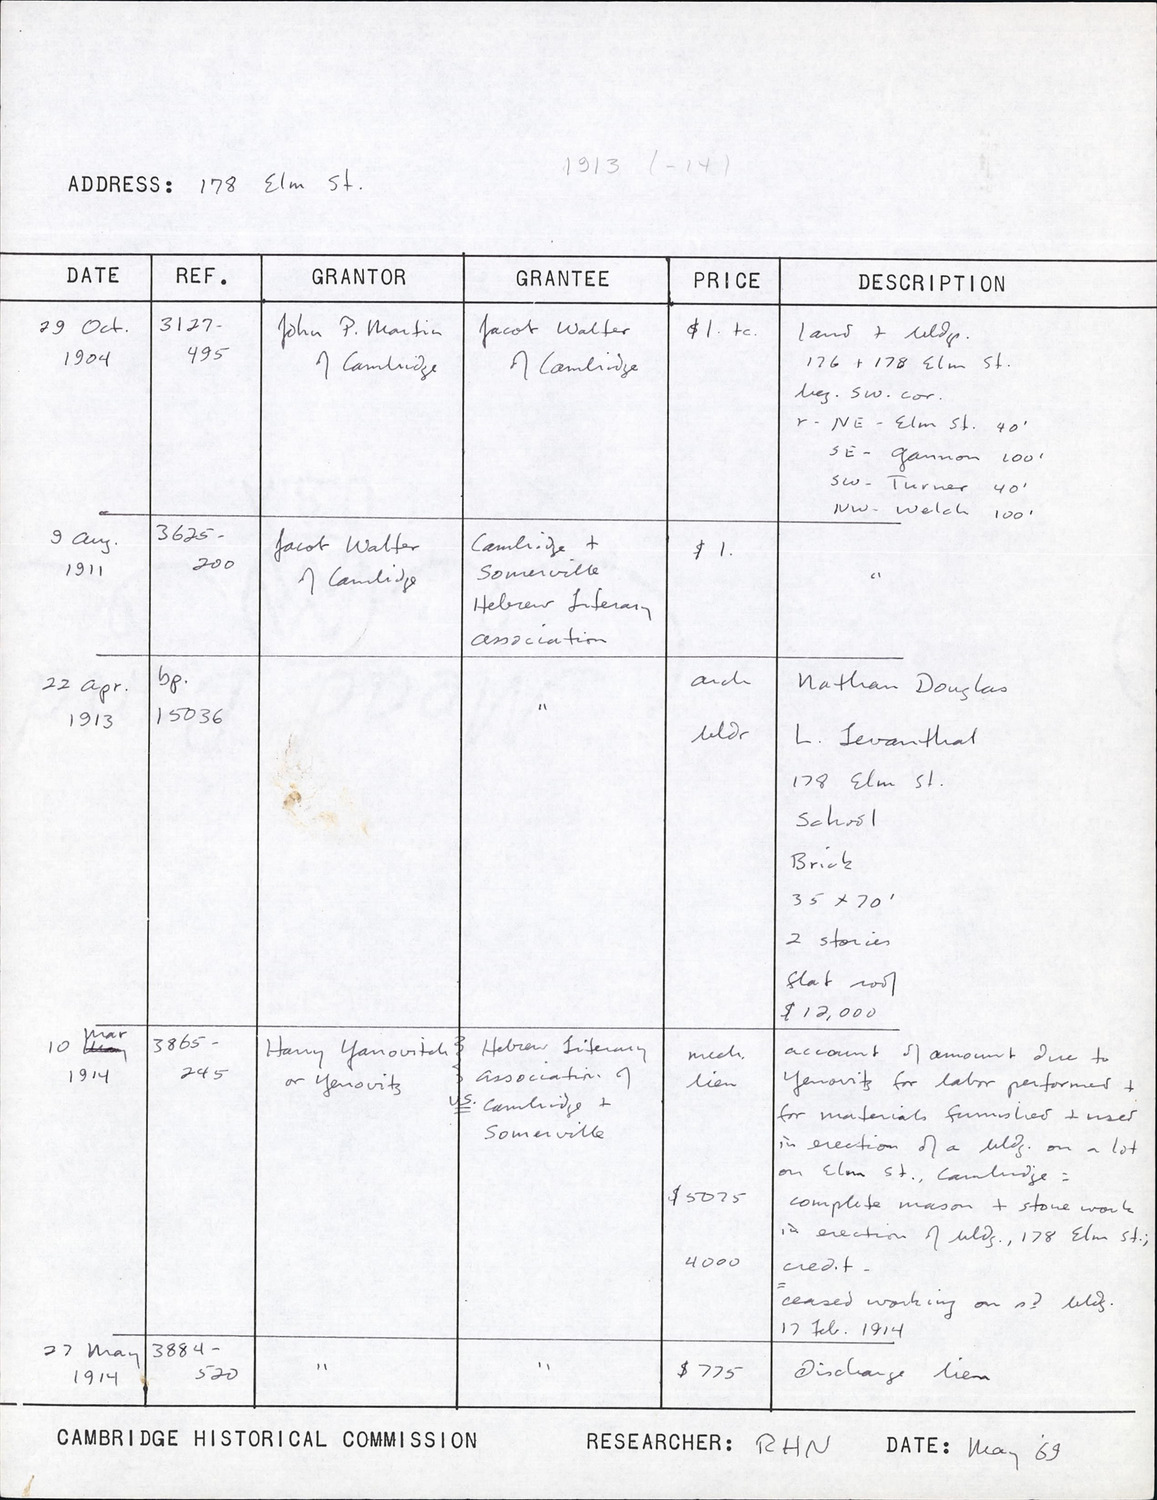 1913 (-14)
ADDRESS: 178 Elm St.
DATE REF. GRANTOR GRANTEE PRICE DESCRIPTION
29 Oct. 3127- John P. Martin Jacob Walter $1. tc. land + bldg.
1904 495 of Cambridge of Cambridge 176 + 178 Elm St.
beg. SW. cor.
r - NE - Elm St. 40'
SE - Gannon 100'
SW - Turner 40'
NW - Welch 100'
9 Aug. 3625- Jacob Walter Cambridge + $1. "
1911 200 of Cambridge Somerville
Hebrew Literary
Association
22 Apr. bp. " arch Nathan Douglas
1913 15036 bldr L. Levanthal
178 Elm St.
School
Brick
35 x 70'
2 stories
flat roof
$12,000
10 Mar 3865- Harry Yanovitch } Hebrew Literary mech. account of amount due to
1914 245 or Yenovitz } Association of lien Yenovitz for labor performed +
vs. Cambridge + for materials furnished + used
Somerville in erection of a bldg. on a lot
on Elm St., Cambridge =
$5075 complete mason + stone work
in erection of bldg., 178 Elm St.;
4000 credit -
= ceased working on sd bldg.
17 Feb. 1914
27 May 3884- " " $775 Discharge lien
1914 520
CAMBRIDGE HISTORICAL COMMISSION RESEARCHER: RHN DATE: May '69